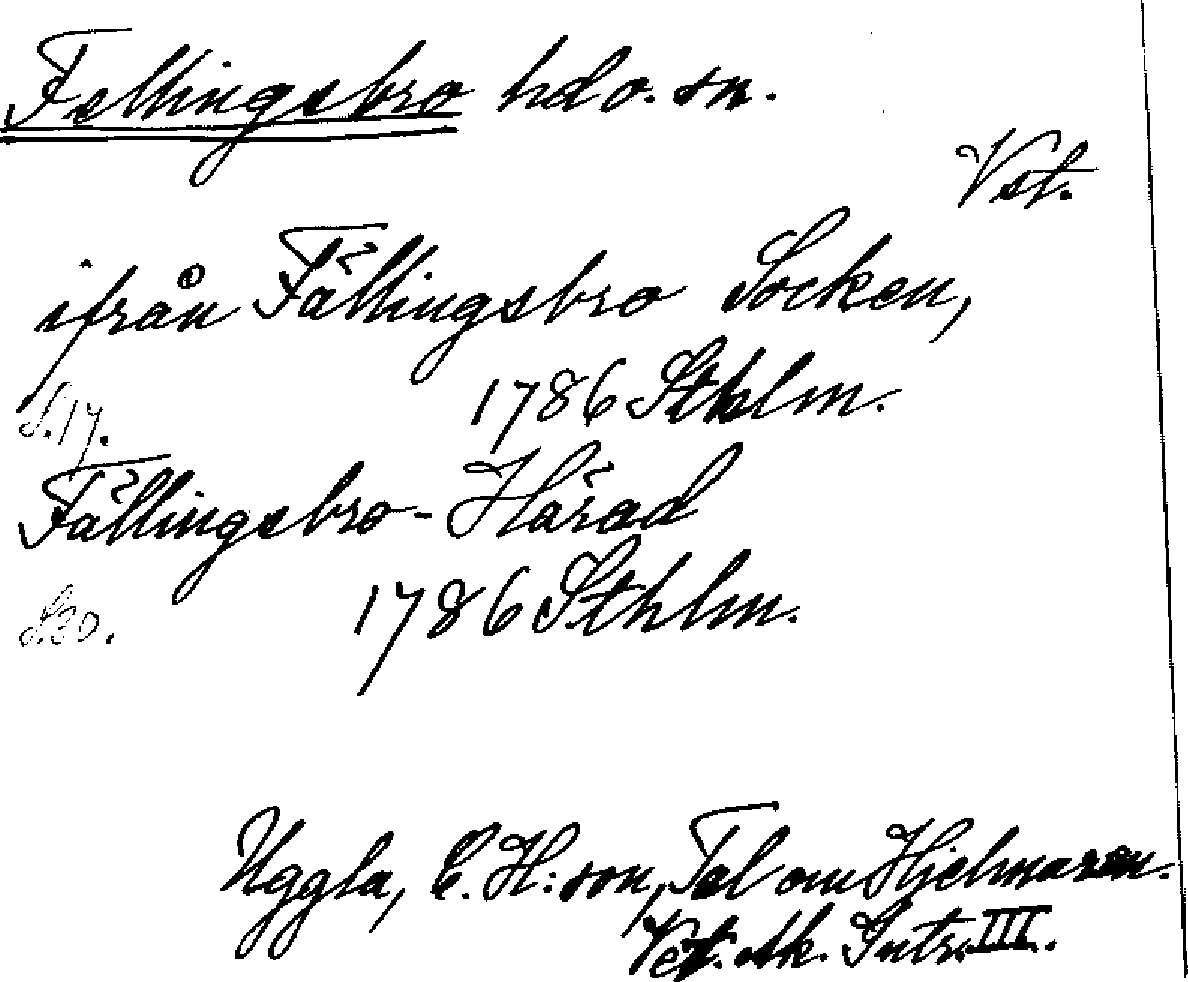 Fellingsbro hd o. sn.
Vst.
ifrån Fällingsbro Socken,
S. 17. 1786 Sthlm.
Fällingsbro-Härad
S. 20. 1786 Sthlm.
Uggla, C. H:son, Tal om Hjelmaren.
Vet. Ak. Intr. III.